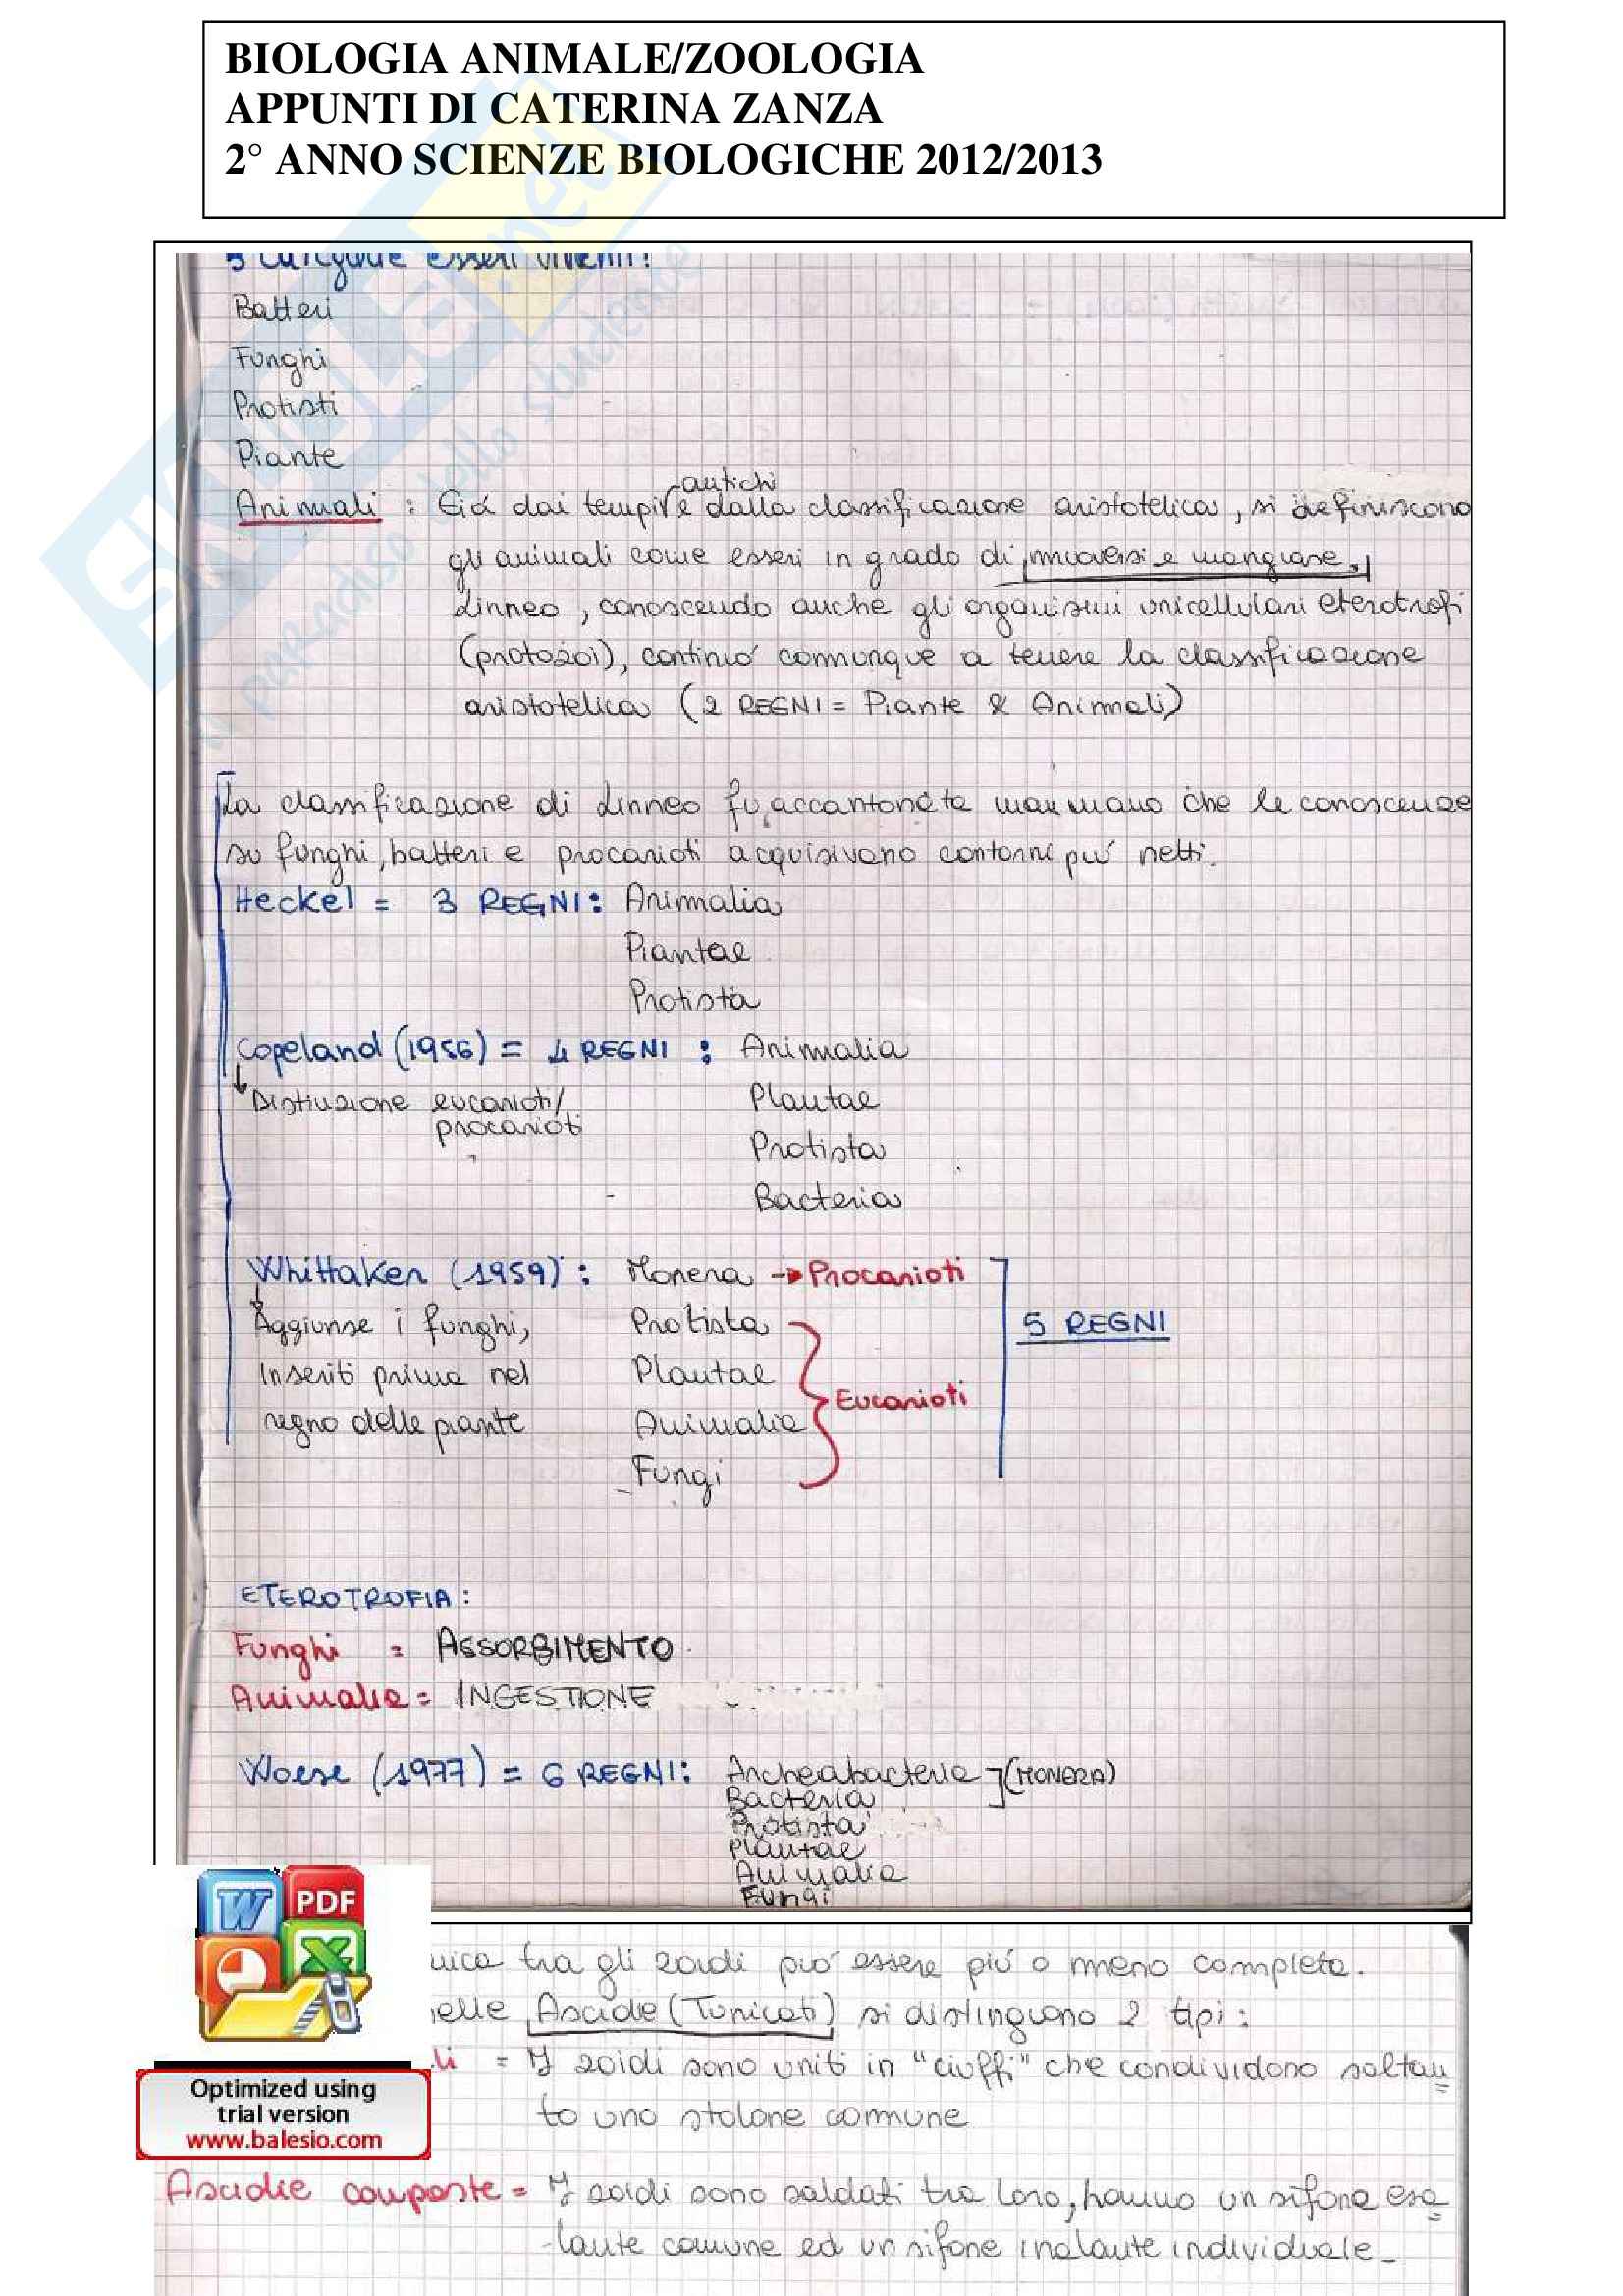 BIOLOGIA ANIMALE/ZOOLOGIA
APPUNTI DI CATERINA ZANZA
2° ANNO SCIENZE BIOLOGICHE 2012/2013
5 categorie esseri viventi:
Batteri
Funghi
Protisti
Piante
antichi
Animali : Già dai tempi e dalla classificazione aristotelica, si definiscono
gli animali come esseri in grado di muoversi e mangiare.
Linneo, conoscendo anche gli organismi unicellulari eterotrofi
(protozoi), continuò comunque a tenere la classificazione
aristotelica (2 REGNI = Piante & Animali)
La classificazione di Linneo fu accantonata man mano che le conoscenze
su funghi, batteri e procarioti acquisivano contorni più netti.
Heckel = 3 REGNI: Animalia
Piantae
Protista
Copeland (1956) = 4 REGNI : Animalia
Distinzione eucarioti/ Plantae
procarioti
Protista
Bacteria
Whittaker (1959): Monera → Procarioti
Aggiunse i funghi, Protista 5 REGNI
Inseriti prima nel Plantae
Eucarioti
regno delle piante Animalia
Fungi
ETEROTROFIA:
Funghi = ASSORBIMENTO
Animalia = INGESTIONE
Woese (1977) = 6 REGNI: Archeabacteria (MONERA)
Bacteria
Protista
Plantae
Animalia
Fungi
W PDF
X
nica tra gli zoidi può essere più o meno completa.
nelle Ascidie (Tunicati) si distinguono 2 tipi:
li = I zoidi sono uniti in "ciuffi" che condividono soltan
to uno stolone comune
Optimized using
trial version
www.balesio.com
Ascidie composte = I zoidi sono saldati tra loro, hanno un sifone esa
lante comune ed un sifone inalante individuale.
SKUOLA.net
il paradiso dello studente